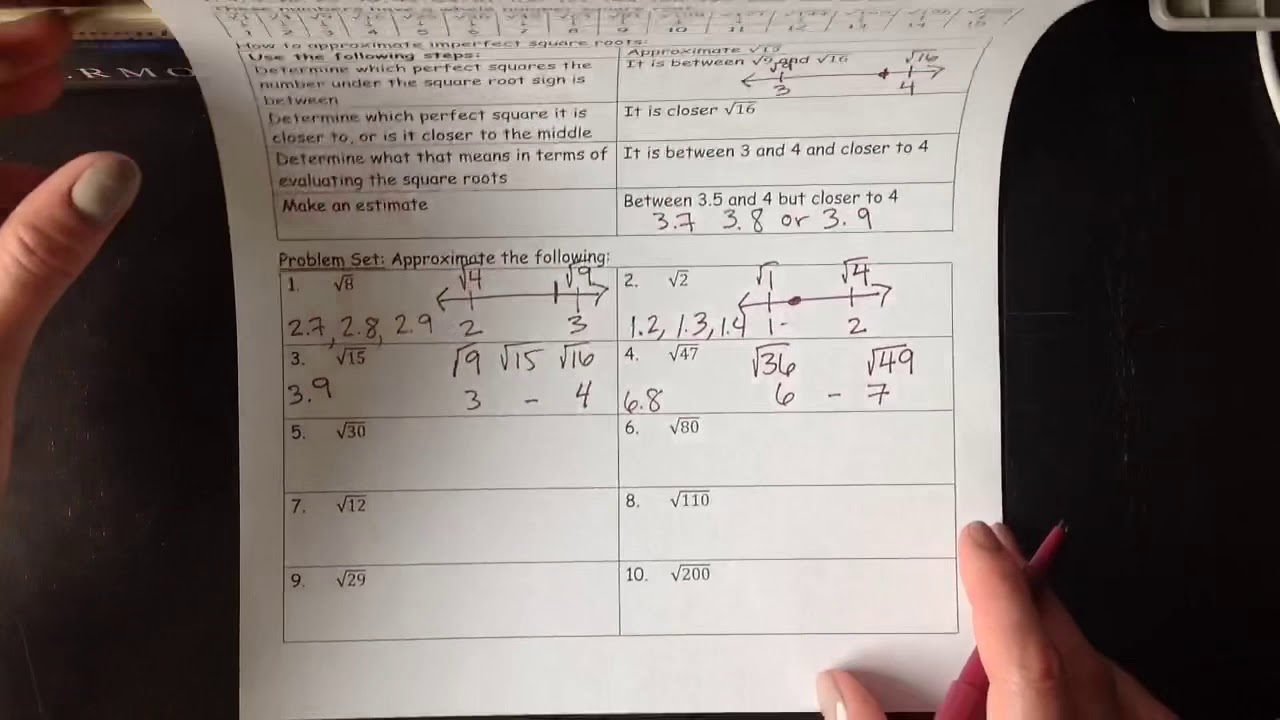 R M O
1 2 3 4 5 6 7 8 9 10 11 12 13 14 15
How to approximate imperfect square roots:
Use the following steps:
Approximate √15
Determine which perfect squares the
number under the square root sign is
between
It is between √9 and √16
√9 √16
3 4
Determine which perfect square it is
closer to, or is it closer to the middle
It is closer √16
Determine what that means in terms of
evaluating the square roots
It is between 3 and 4 and closer to 4
Make an estimate
Between 3.5 and 4 but closer to 4
3.7 3.8 or 3.9
Problem Set: Approximate the following:
1. √8 √4 √9
2.7, 2.8, 2.9 2 3
2. √2 √1 √4
1.2, 1.3, 1.4 1 - 2
3. √15 √9 √15 √16
3.9 3 - 4
4. √47 √36 √49
6.8 6 - 7
5. √30
6. √80
7. √12
8. √110
9. √29
10. √200